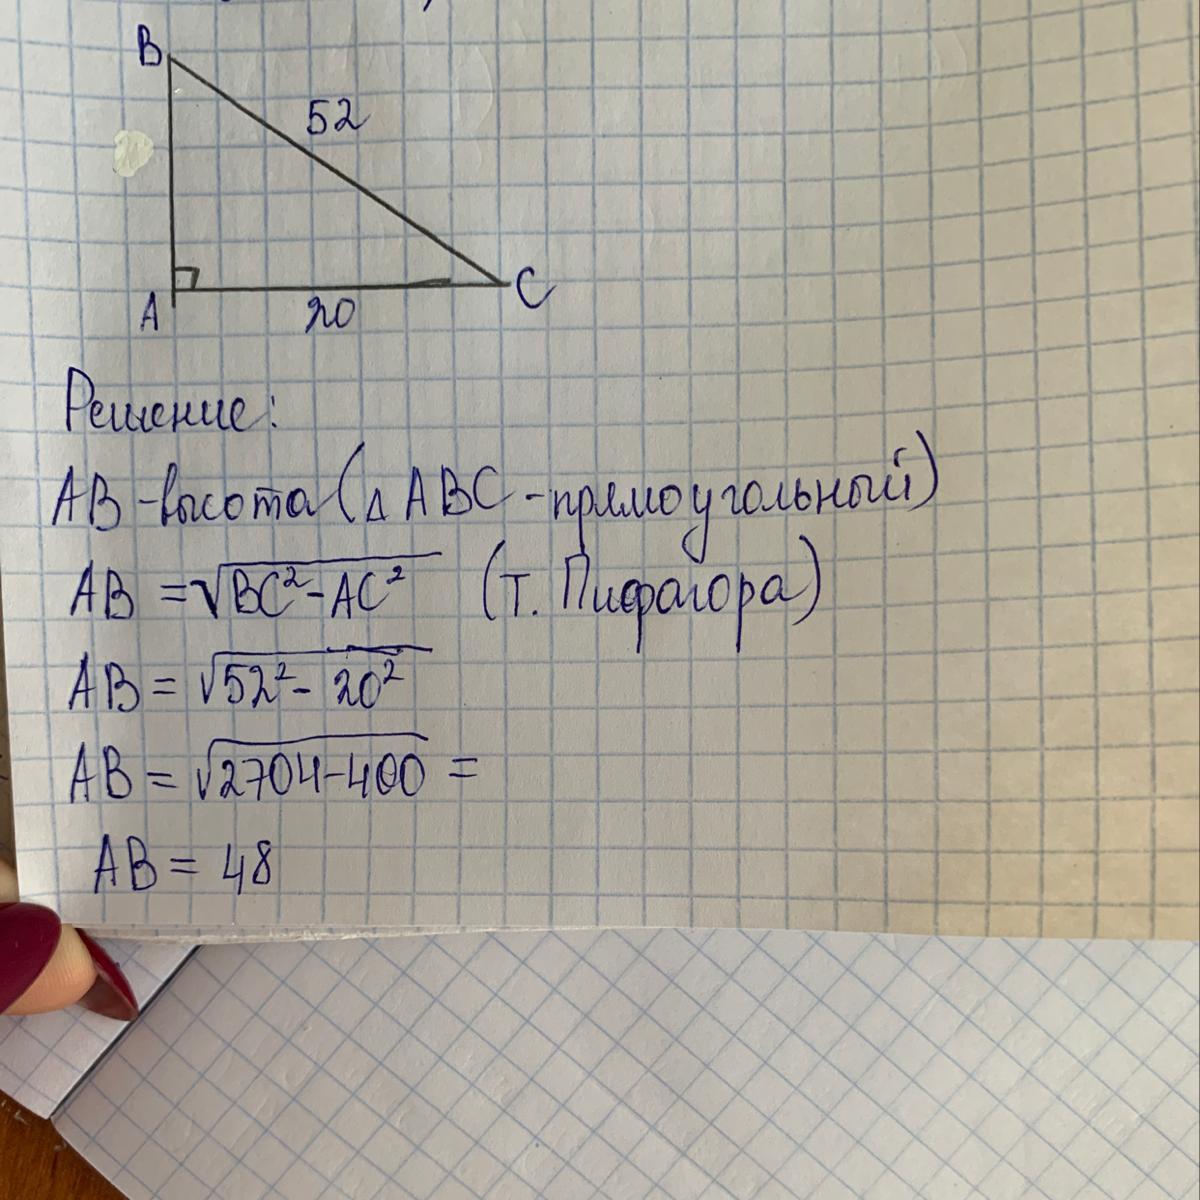 B
52
A
20
C
Решение:
AB - высота (△ ABC - прямоугольный)
AB = √BC² - AC² (т. Пифагора)
AB = √52² - 20²
AB = √2704 - 400 =
AB = 48